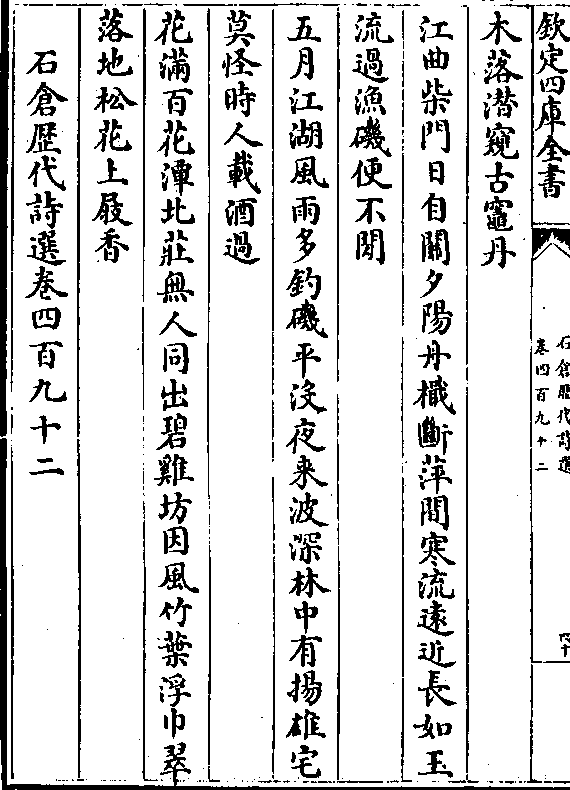 欽定四庫全書
石倉歴代詩選
卷四百九十二
四十
木落潜窺古竈丹
江曲柴門日自關夕陽丹檝斷萍間寒流遠近長如玉
流過漁磯便不閒
五月江湖風雨多釣磯平没夜来波深林中有揚雄宅
莫怪時人載酒過
花滿百花潭北莊無人同出碧雞坊因風竹葉浮巾翠
落地松花上屐香
石倉歴代詩選卷四百九十二